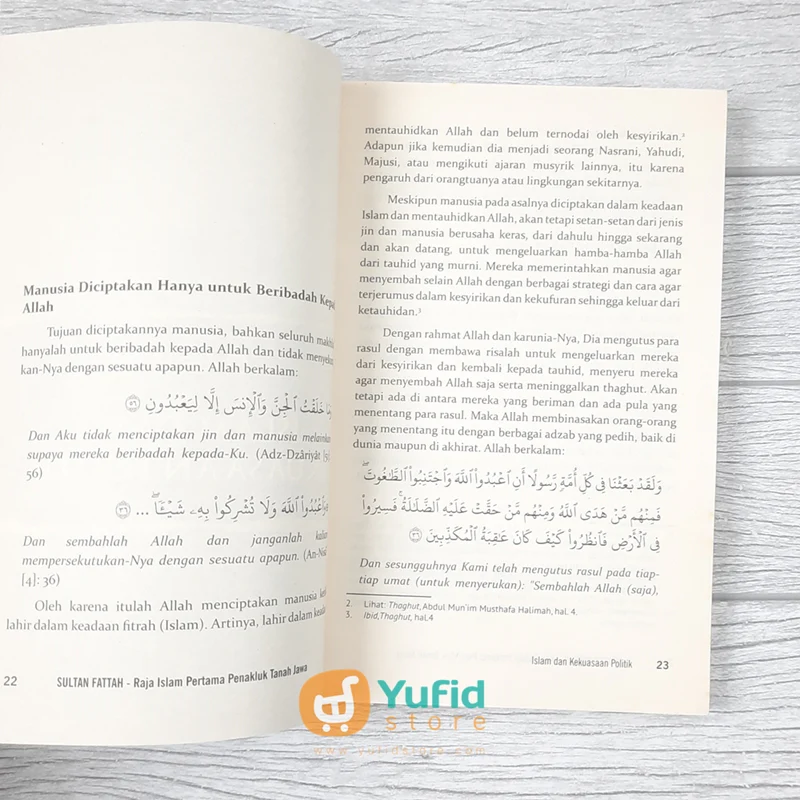 Manusia Diciptakan Hanya untuk Beribadah Kepa
Allah
Tujuan diciptakannya manusia, bahkan seluruh makhlu
hanyalah untuk beribadah kepada Allah dan tidak menyeku
kan-Nya dengan sesuatu apapun. Allah berkalam:
خَلَقْتُ ٱلْجِنَّ وَٱلْإِنسَ إِلَّا لِيَعْبُدُونِ ٥٦
Dan Aku tidak menciptakan jin dan manusia melainkan
supaya mereka beribadah kepada-Ku. (Adz-Dzâriyât [51]:
56)
وَٱعْبُدُوا۟ ٱللَّهَ وَلَا تُشْرِكُوا۟ بِهِۦ شَيْـًٔا ۖ ... ٣٦
Dan sembahlah Allah dan janganlah kalian
mempersekutukan-Nya dengan sesuatu apapun. (An-Nisâ
[4]: 36)
Oleh karena itulah Allah menciptakan manusia
lahir dalam keadaan fitrah (Islam). Artinya, lahir dalam keada
22 SULTAN FATTAH - Raja Islam Pertama Penakluk Tanah Jawa
mentauhidkan Allah dan belum ternodai oleh kesyirikan.²
Adapun jika kemudian dia menjadi seorang Nasrani, Yahudi,
Majusi, atau mengikuti ajaran musyrik lainnya, itu karena
pengaruh dari orangtuanya atau lingkungan sekitarnya.
Meskipun manusia pada asalnya diciptakan dalam keadaan
Islam dan mentauhidkan Allah, akan tetapi setan-setan dari jenis
jin dan manusia berusaha keras, dari dahulu hingga sekarang
dan akan datang, untuk mengeluarkan hamba-hamba Allah
dari tauhid yang murni. Mereka memerintahkan manusia agar
menyembah selain Allah dengan berbagai strategi dan cara agar
terjerumus dalam kesyirikan dan kekufuran sehingga keluar dari
ketauhidan.³
Dengan rahmat Allah dan karunia-Nya, Dia mengutus para
rasul dengan membawa risalah untuk mengeluarkan mereka
dari kesyirikan dan kembali kepada tauhid, menyeru mereka
agar menyembah Allah saja serta meninggalkan thaghut. Akan
tetapi ada di antara mereka yang beriman dan ada pula yang
menentang para rasul. Maka Allah membinasakan orang-orang
yang menentang itu dengan berbagai adzab yang pedih, baik di
dunia maupun di akhirat. Allah berkalam:
وَلَقَدْ بَعَثْنَا فِى كُلِّ أُمَّةٍ رَّسُولًا أَنِ ٱعْبُدُوا۟ ٱللَّهَ وَٱجْتَنِبُوا۟ ٱلطَّٰغُوتَ ۖ
فَمِنْهُم مَّنْ هَدَى ٱللَّهُ وَمِنْهُم مَّنْ حَقَّتْ عَلَيْهِ ٱلضَّلَٰلَةُ ۚ فَسِيرُوا۟
فِى ٱلْأَرْضِ فَٱنظُرُوا۟ كَيْفَ كَانَ عَٰقِبَةُ ٱلْمُكَذِّبِينَ ٣٦
Dan sesungguhnya Kami telah mengutus rasul pada tiap-
tiap umat (untuk menyerukan): "Sembahlah Allah (saja),
2. Lihat: Thaghut, Abdul Mun'im Musthafa Halimah, hal. 4.
3. Ibid, Thaghut, hal.4
Islam dan Kekuasaan Politik 23
Yufid
store
www.yufidstore.com